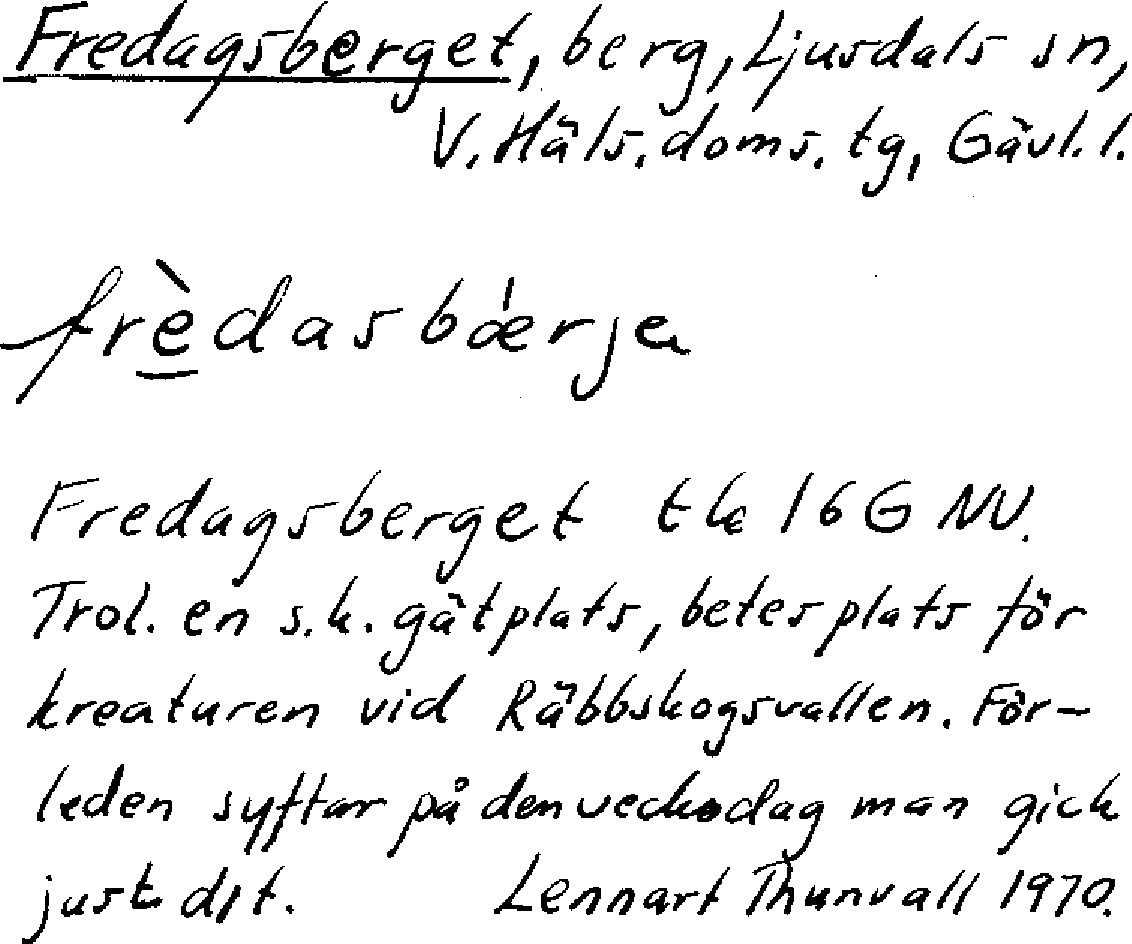 Fredagsberget, berg, Ljusdals sn,
V. Häls. doms. tg, Gävl. l.
frè̲dasbǽrje
Fredagsberget tk 16G NV.
Trol. en s.k. gätplats, betesplats för
kreaturen vid Räbbskogsvallen. För-
leden syftar på den veckodag man gick
just dit. Lennart Thunvall 1970.